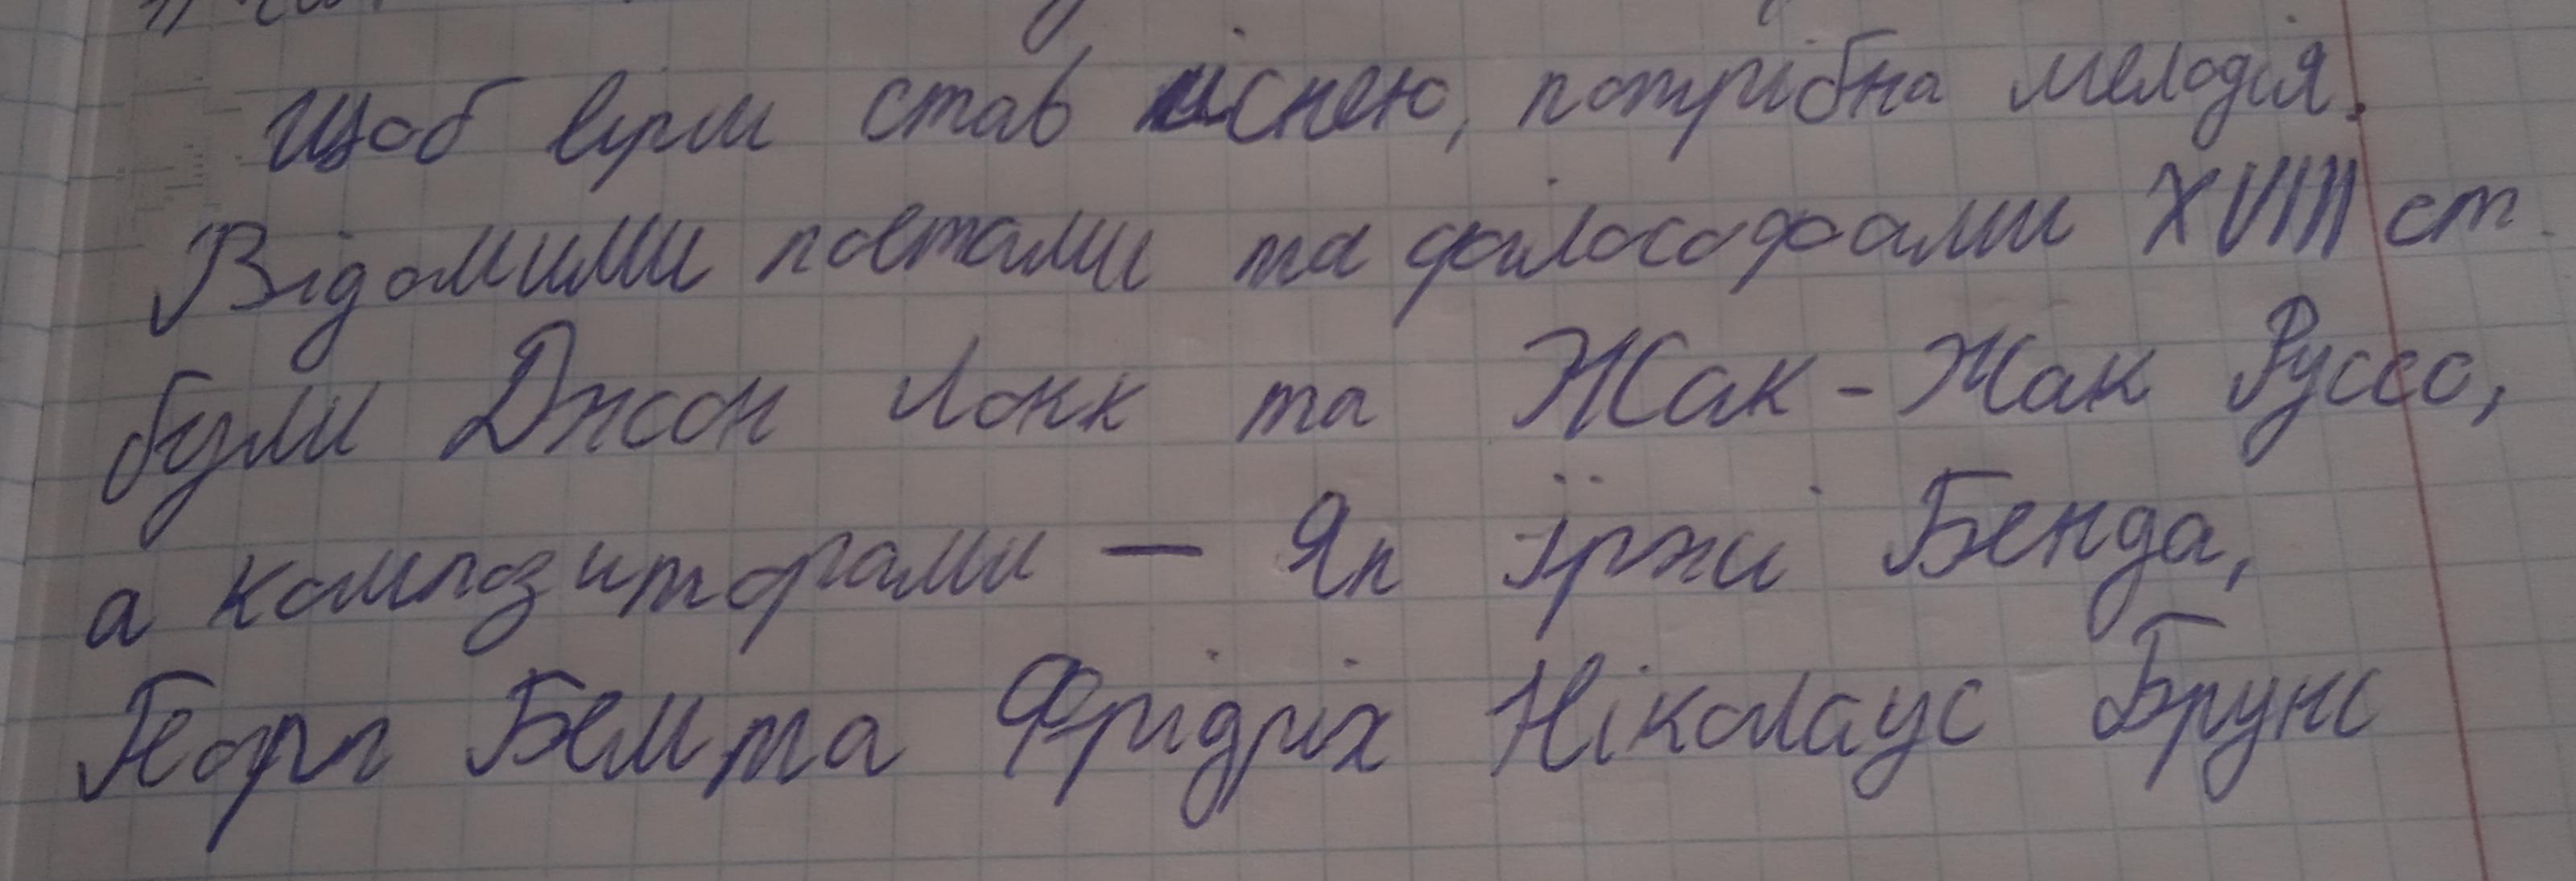 Щоб вірш став піснею, потрібна мелодія.
Відомими поетами та філософами XVIII ст.
були Джон Локк та Жак-Жак Руссо,
а композиторами — Ян Їржі Бенда,
Георг Бем та Фрідріх Ніколаус Брунс